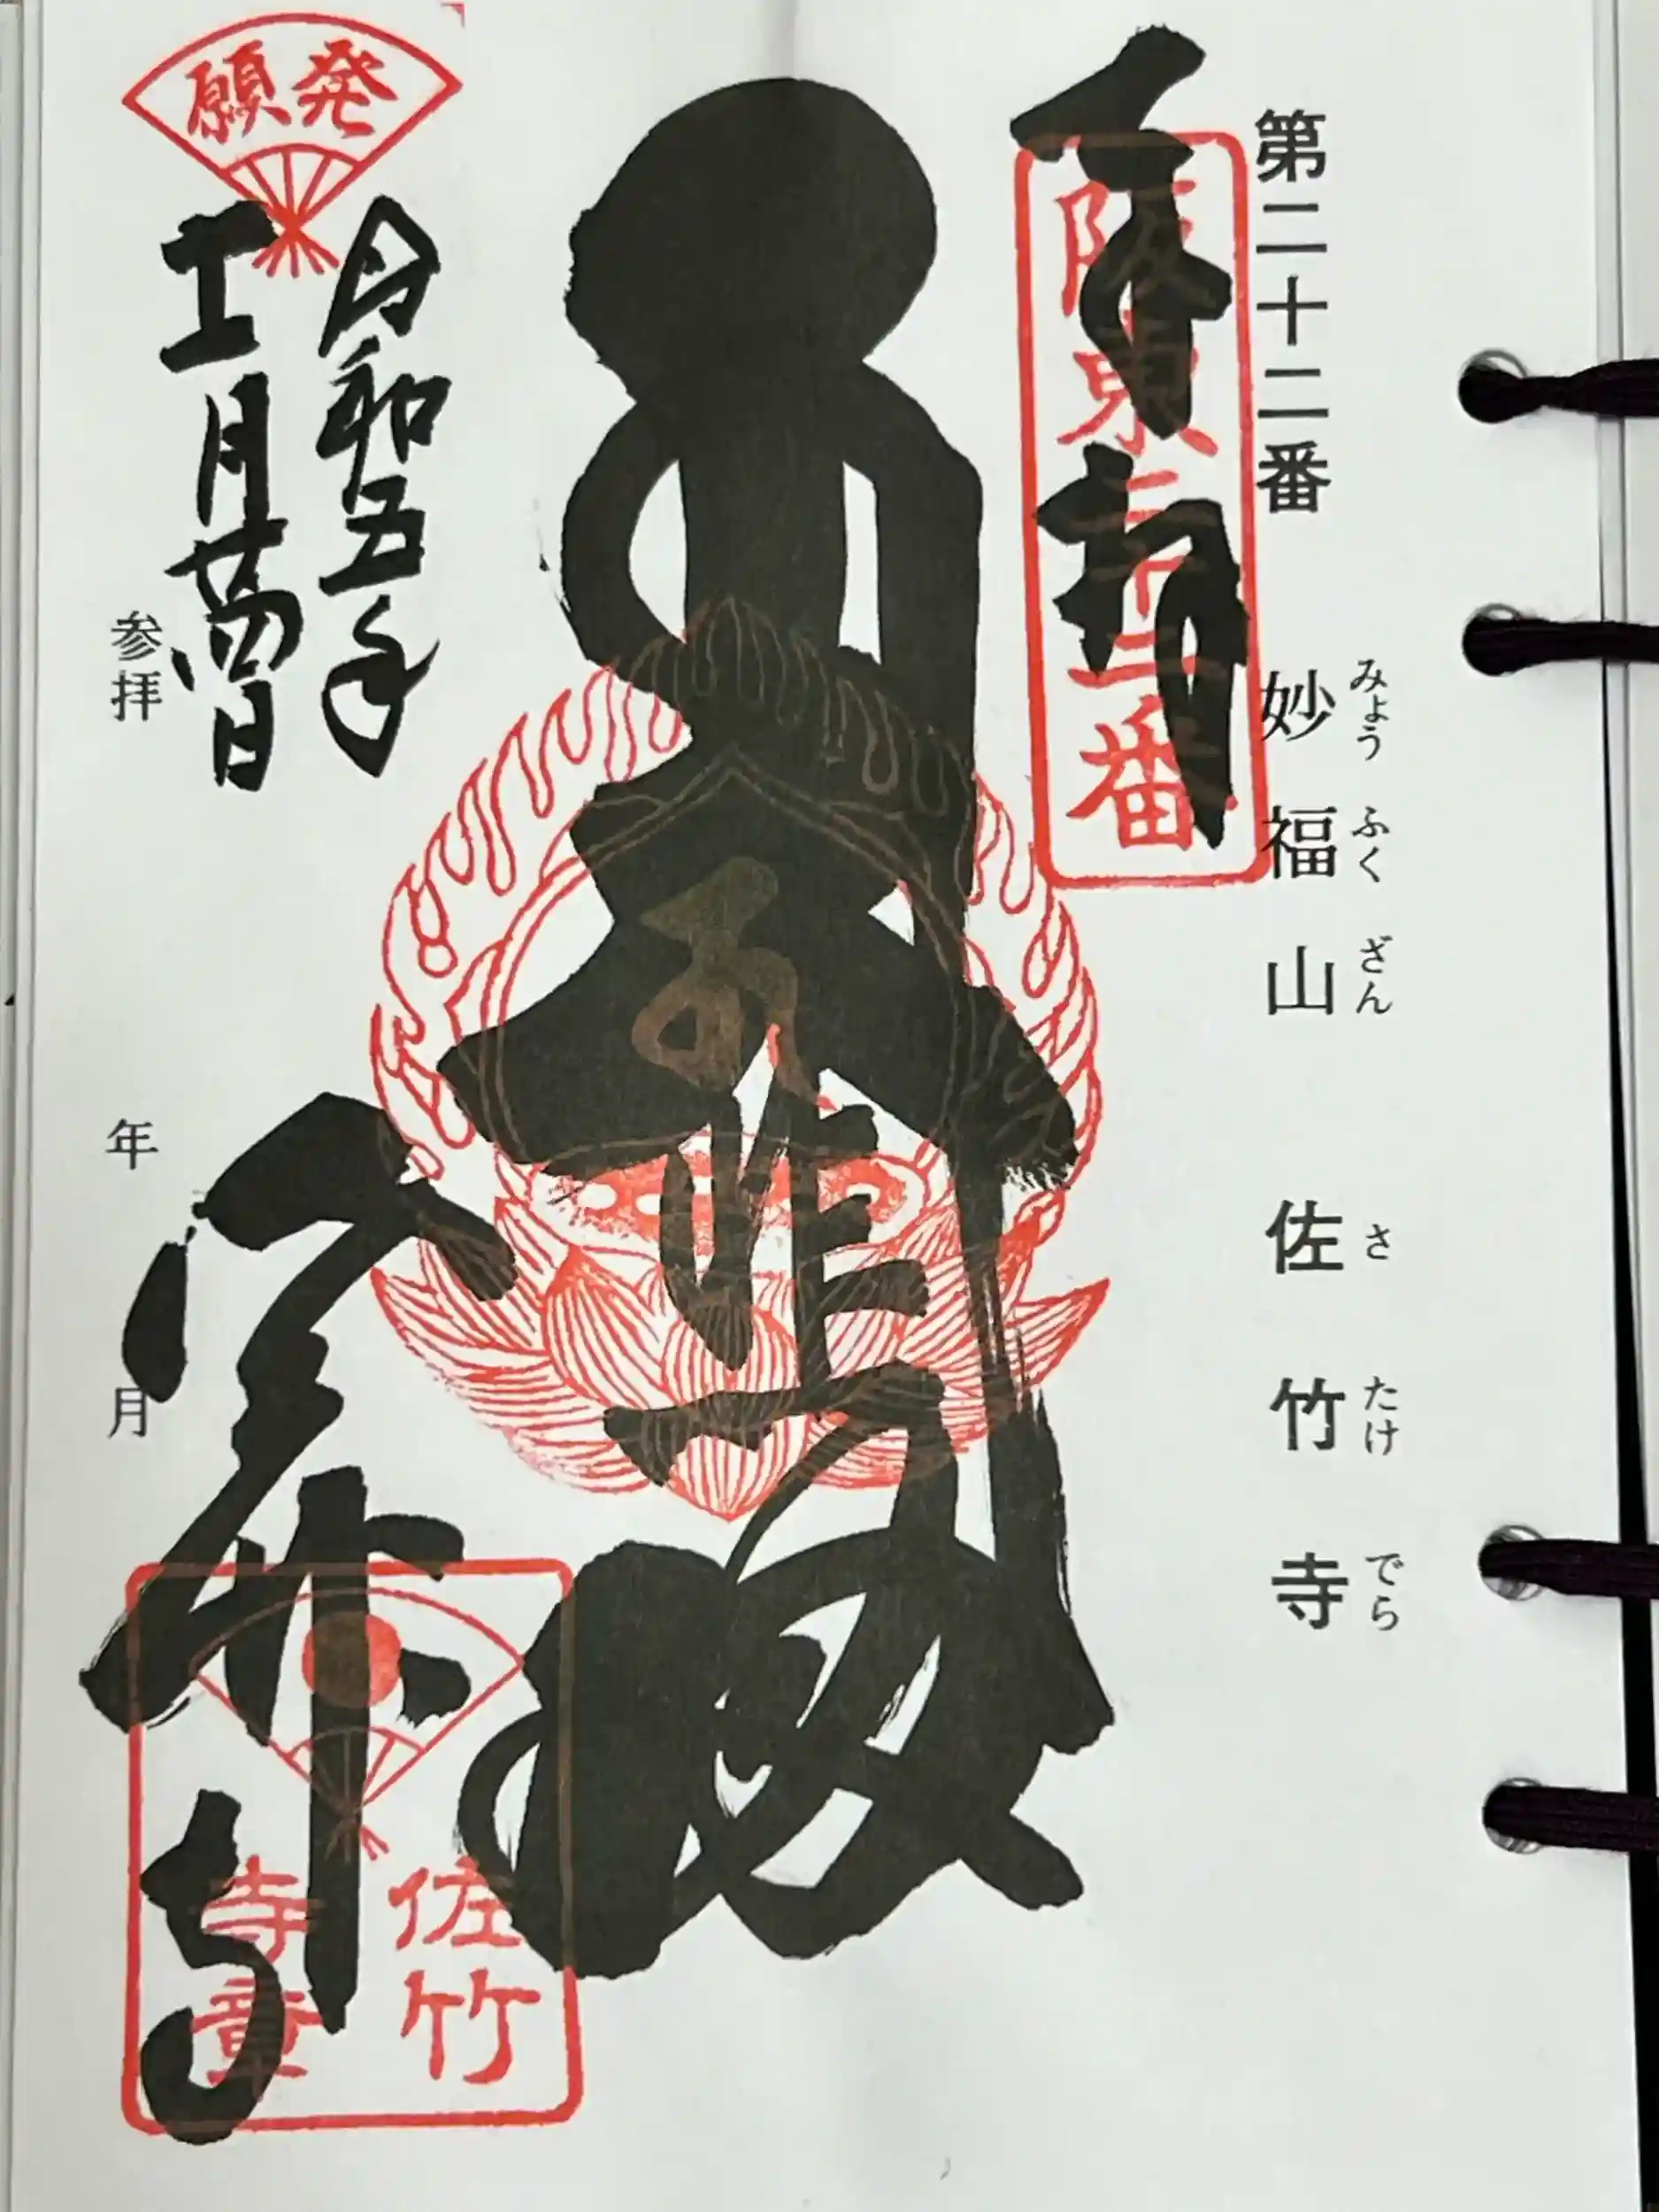 第二十二番
妙福山　佐竹寺
みょうふくざん　さたけでら
奉拝
坂東二十二番
大悲殿
発願
令和五年
十一月廿四日
参拝
年
月
佐竹寺
佐竹
寺章